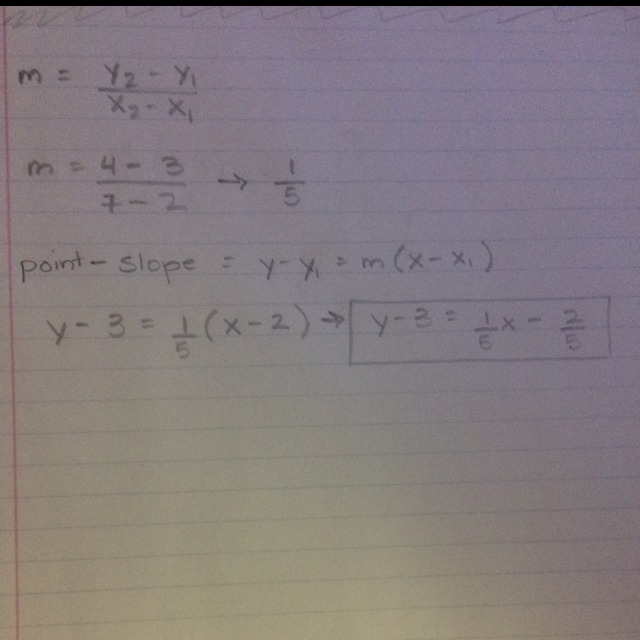 m = y₂ - y₁ / x₂ - x₁
m = 4 - 3 / 7 - 2 → 1/5
point - slope = y - y₁ = m(x - x₁)
y - 3 = 1/5 (x - 2) → y - 3 = 1/5 x - 2/5